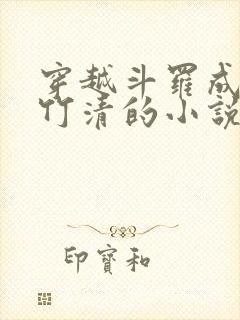 穿越斗羅成
竹清的小說
印寶和